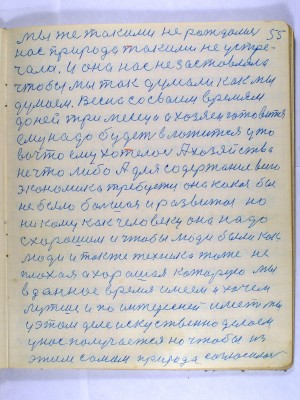 мы же такими не рождались 55
нас природа такими не устре-
чала. И она нас не заставляла
чтобы мы так думали как мы
думаем. Весна со своим временем
до ней три месяца а хозяин готовится
ему надо будет вложится у то
во что ему хотелось А хозяйства
не что либо А для содержание
экономика требуется она какая бы
не была большая и развитая но
ни кому как человеку она надо
с хорошим и чтобы люди были как
люди и также техника тоже не
плохая а хорошая которую мы
в данное время имеем а хочем
лутше и по интересней иметь мы
у этом деле искуственно делаем
у нас получается но чтобы из
этим самым природа согласилась